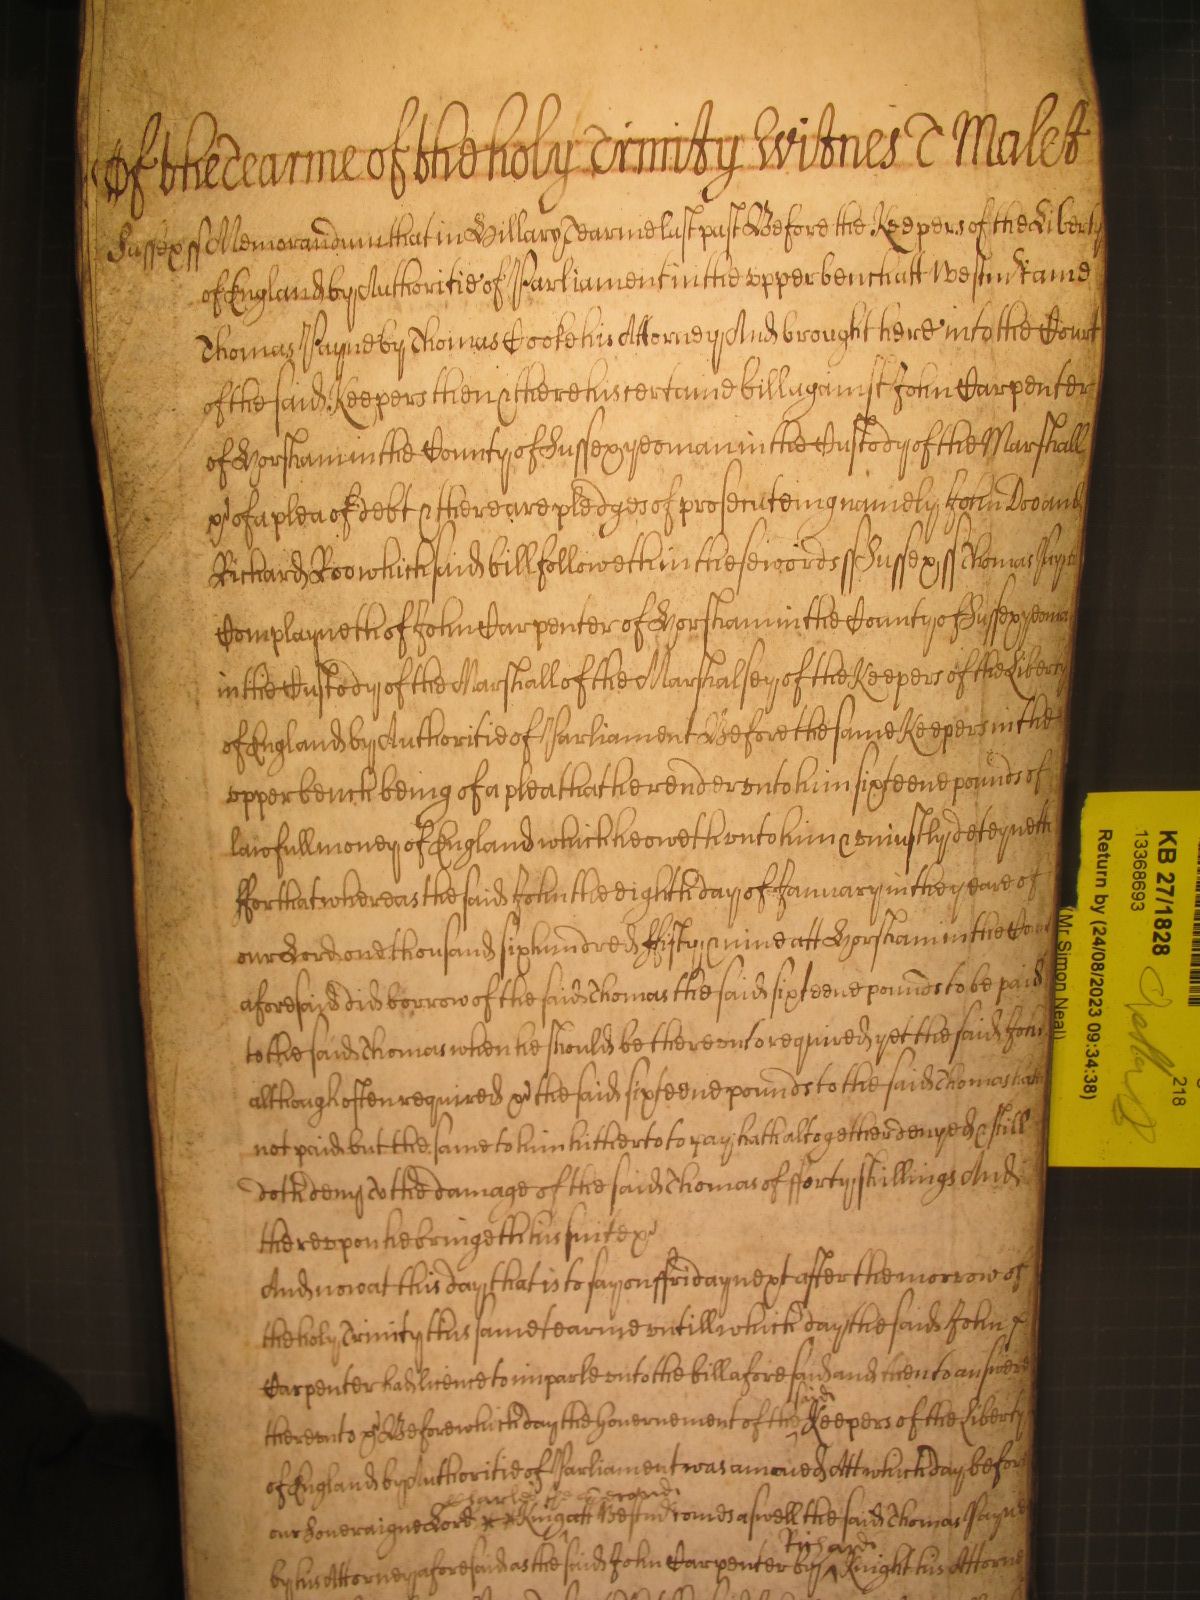 Of the Tearme of the holy Trinity Witnes T Malet
Sussex ss Memorandum that in Hillary Tearme last past Before the Keepers of the Liberty
of England by Authoritie of Parliament in the upper bench att Westm̃ came
Thomas Payne by Thomas Cooke his Attorney And brought here into the Court
of the said Keepers then & there his certaine bill against John Carpenter
of Horsham in the County of Sussex yeoman in the Custody of the Marshall
&c of a plea of debt & there are pledges of prosecuteing namely John Doo and
Richard Roo which said bill followeth in these words ss Sussex ss Thomas Payne
Complayneth of John Carpenter of Horsham in the County of Sussex yeoma
in the Custody of the Marshall of the Marshalsey of the Keepers of the Liberty
of England by Authoritie of Parliament Before the same Keepers in the
upper bench being of a plea that he render unto him sixteene pounds of
lawfull money of England which he oweth unto him & uniustly deteyneth
ffor that whereas the said John the eighth day of January in the yeare of
our Lord one thousand six hundred ffifty & nine att Horsham in the Coun
aforesaid did borrow of the said Thomas the said sixteene pounds to be paid
to the said Thomas when he should be thereunto required yet the said John
although often required &c the said sixteene pounds to the said Thomas hath
not paid but the same to him hitherto to pay hath altogether denyed & still
doth deny to the damage of the said Thomas of fforty shillings And
thereupon he bringeth his suite &c
And now at this day that is to say on ffriday next after the morrow of
the holy Trinity this same tearme untill which day the said John
Carpenter had licence to imparle unto the bill aforesaid and then to answere
thereunto &c Before which day the Government of the said Keepers of the Liberty
of England by Authoritie of Parliament was amoved Att which day before
our Soveraigne Lord Charles the second King att Westm̃ comes aswell the said Thomas Payne
by his Attorney aforesaid as the said John Carpenter by Richard Knight his Attorne
KB 27/1828
13368693
218
Return by (24/08/2023 09:34:38)
(Mr Simon Neal)